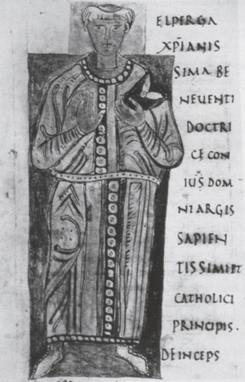 ELPERGA
XP̄IANIS
SIMA BE
NEVENTI
DOCTRI
CĘ CON
IUS̄ DOM
NI ARGIS
SAPIEN
TISSIMI ET
CATHOLICI
PRINCIPIS.
DEINCEPS